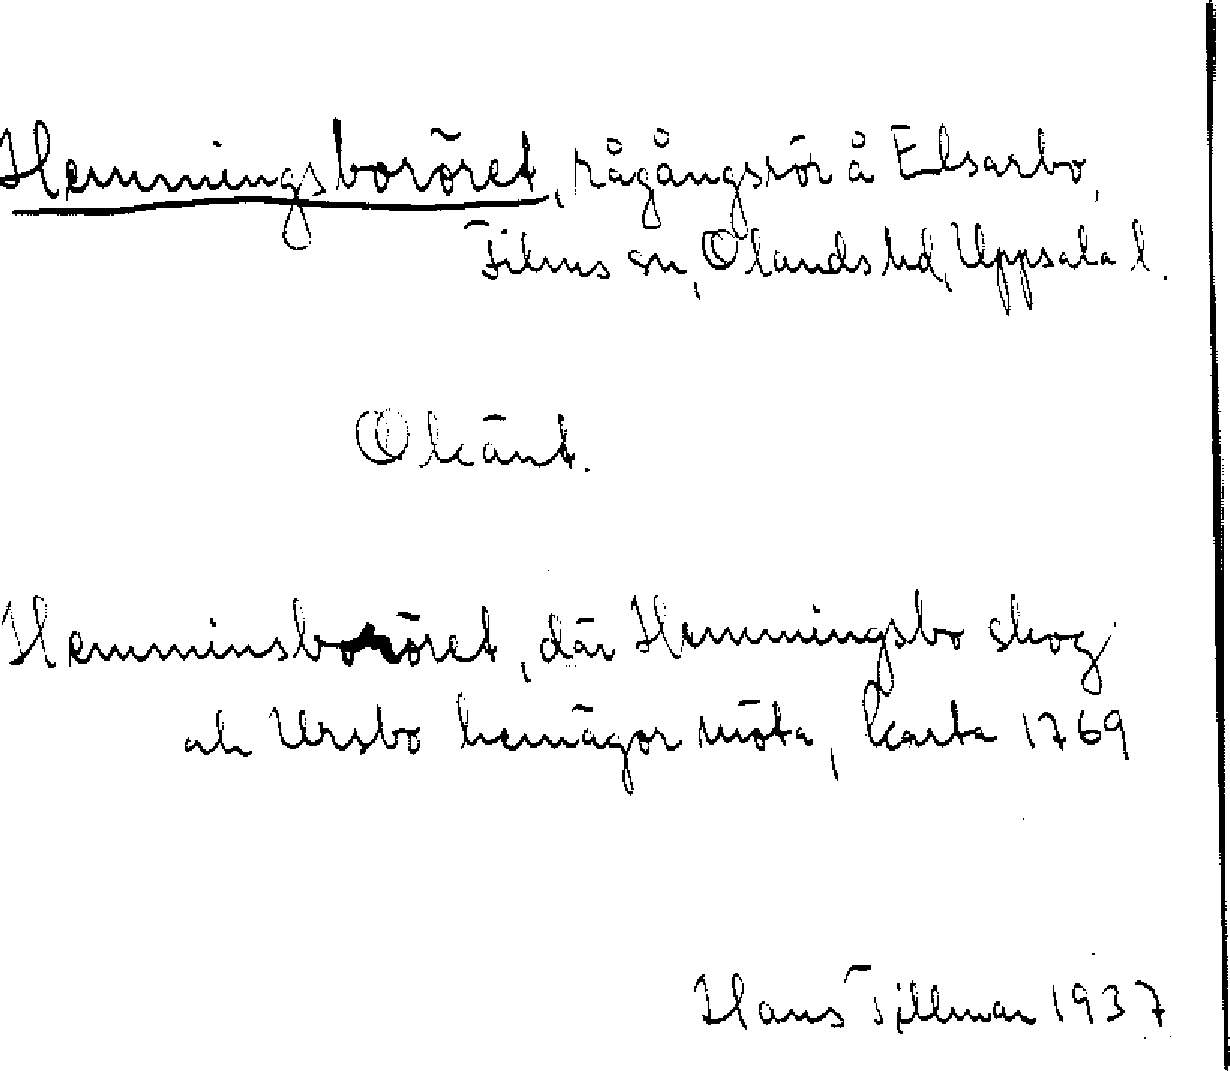 Hemmingsboröret, rågångsrör å Elsarbo,
Films sn, Olands hd, Uppsala l.
Okänt.
Hemminsboröret, där Hemmingsbo skog
och Ursbo hemägor möta, karta 1769
Hans Tillman 1937